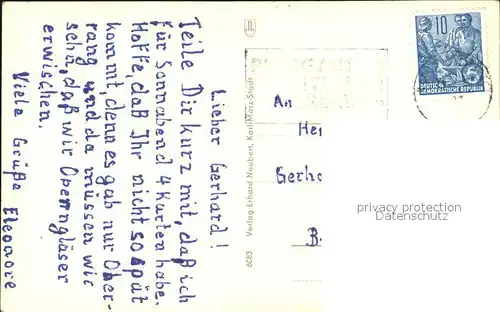 Lieber Gerhard!
Teile Dir kurz mit, daß ich
für Sonnabend 4 Karten habe.
Hoffe, daß Ihr nicht so spät
kommt, denn es gab nur Ober-
rang und da müssen wir
sehn, daß wir Opernngläser
erwischen.
Viele Grüße Eleonore
6083 Verlag Erhard Neubert, Karl-Marx-Stadt
10
DEUTSCHE
DEMOKRATISCHE REPUBLIK
An
Her
Gerha
B
privacy protection
Datenschutz